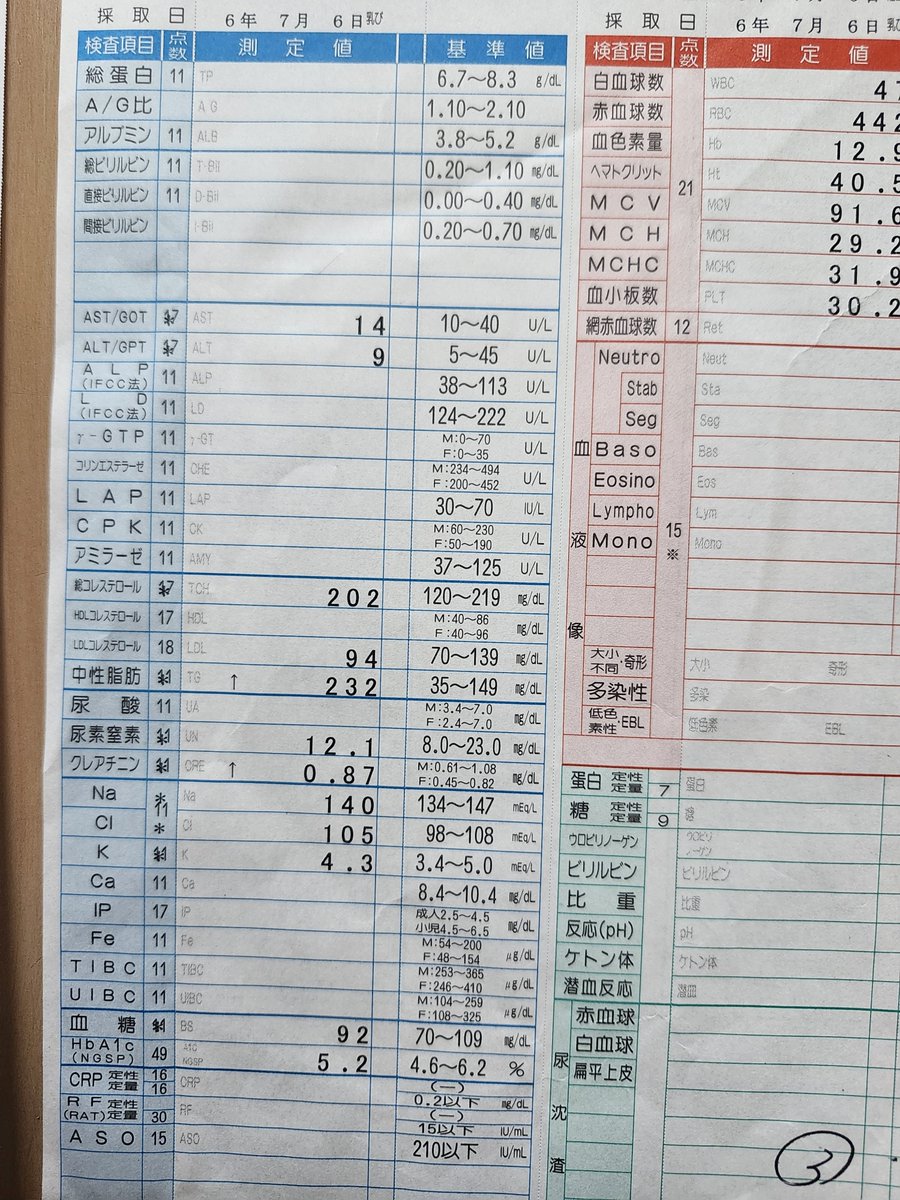 採取日 6年 7月 6日 乳び
検査項目 点数 測定値 基準値
総蛋白 11 TP 6.7～8.3 g/dL
A/G比 AG 1.10～2.10
アルブミン 11 ALB 3.8～5.2 g/dL
総ビリルビン 11 T-Bil 0.20～1.10 mg/dL
直接ビリルビン 11 D-Bil 0.00～0.40 mg/dL
間接ビリルビン I-Bil 0.20～0.70 mg/dL
AST/GOT 17 AST 14 10～40 U/L
ALT/GPT 17 ALT 9 5～45 U/L
ALP (IFCC法) 11 ALP 38～113 U/L
LD (IFCC法) 11 LD 124～222 U/L
γ-GTP 11 γ-GT M:0～70 F:0～35 U/L
コリンエステラーゼ 11 CHE M:234～494 F:200～452 U/L
LAP 11 LAP 30～70 IU/L
CPK 11 CK M:60～230 F:50～190 U/L
アミラーゼ 11 AMY 37～125 U/L
総コレステロール 17 TCH 202 120～219 mg/dL
HDLコレステロール 17 HDL M:40～86 F:40～96 mg/dL
LDLコレステロール 18 LDL 94 70～139 mg/dL
中性脂肪 TG ↑ 232 35～149 mg/dL
尿酸 11 UA M:3.4～7.0 F:2.4～7.0 mg/dL
尿素窒素 UN 12.1 8.0～23.0 mg/dL
クレアチニン CRE ↑ 0.87 M:0.61～1.08 F:0.45～0.82 mg/dL
Na * 11 Na 140 134～147 mEq/L
Cl * Cl 105 98～108 mEq/L
K K 4.3 3.4～5.0 mEq/L
Ca 11 Ca 8.4～10.4 mg/dL
IP 17 IP 成人2.5～4.5 小児4.5～6.5 mg/dL
Fe 11 Fe M:54～200 F:48～154 μg/dL
TIBC 11 TIBC M:253～365 F:246～410 μg/dL
UIBC 11 UIBC M:104～259 F:108～325 μg/dL
血糖 BS 92 70～109 mg/dL
HbA1c (NGSP) 49 A1C NGSP 5.2 4.6～6.2 %
CRP 定性 定量 16 16 CRP (－) 0.2以下 mg/dL
RF 定性 (RAT)定量 30 RF (－) 15以下 IU/mL
ASO 15 ASO 210以下 IU/mL
採取日 6年 7月 6日
検査項目 点数 測定値
白血球数 WBC 47
赤血球数 RBC 442
血色素量 Hb 12.9
ヘマトクリット Ht 40.5
21
MCV MCV 91.6
MCH MCH 29.2
MCHC MCHC 31.9
血小板数 PLT 30.2
網赤血球数 12 Ret
血液像
15
※
Neutro Neut
Stab Sta
Seg Seg
Baso Bas
Eosino Eos
Lympho Lym
Mono Mono
大小不同・奇形 大小 奇形
多染性 多染
低色素性・EBL 低色素 EBL
蛋白 定性 定量 7 蛋白
糖 定性 定量 9 糖
ウロビリノーゲン ウロビリノーゲン
ビリルビン ビリルビン
比重 比重
反応(pH) pH
ケトン体 ケトン体
潜血反応 潜血
尿沈渣
赤血球
白血球
扁平上皮
3